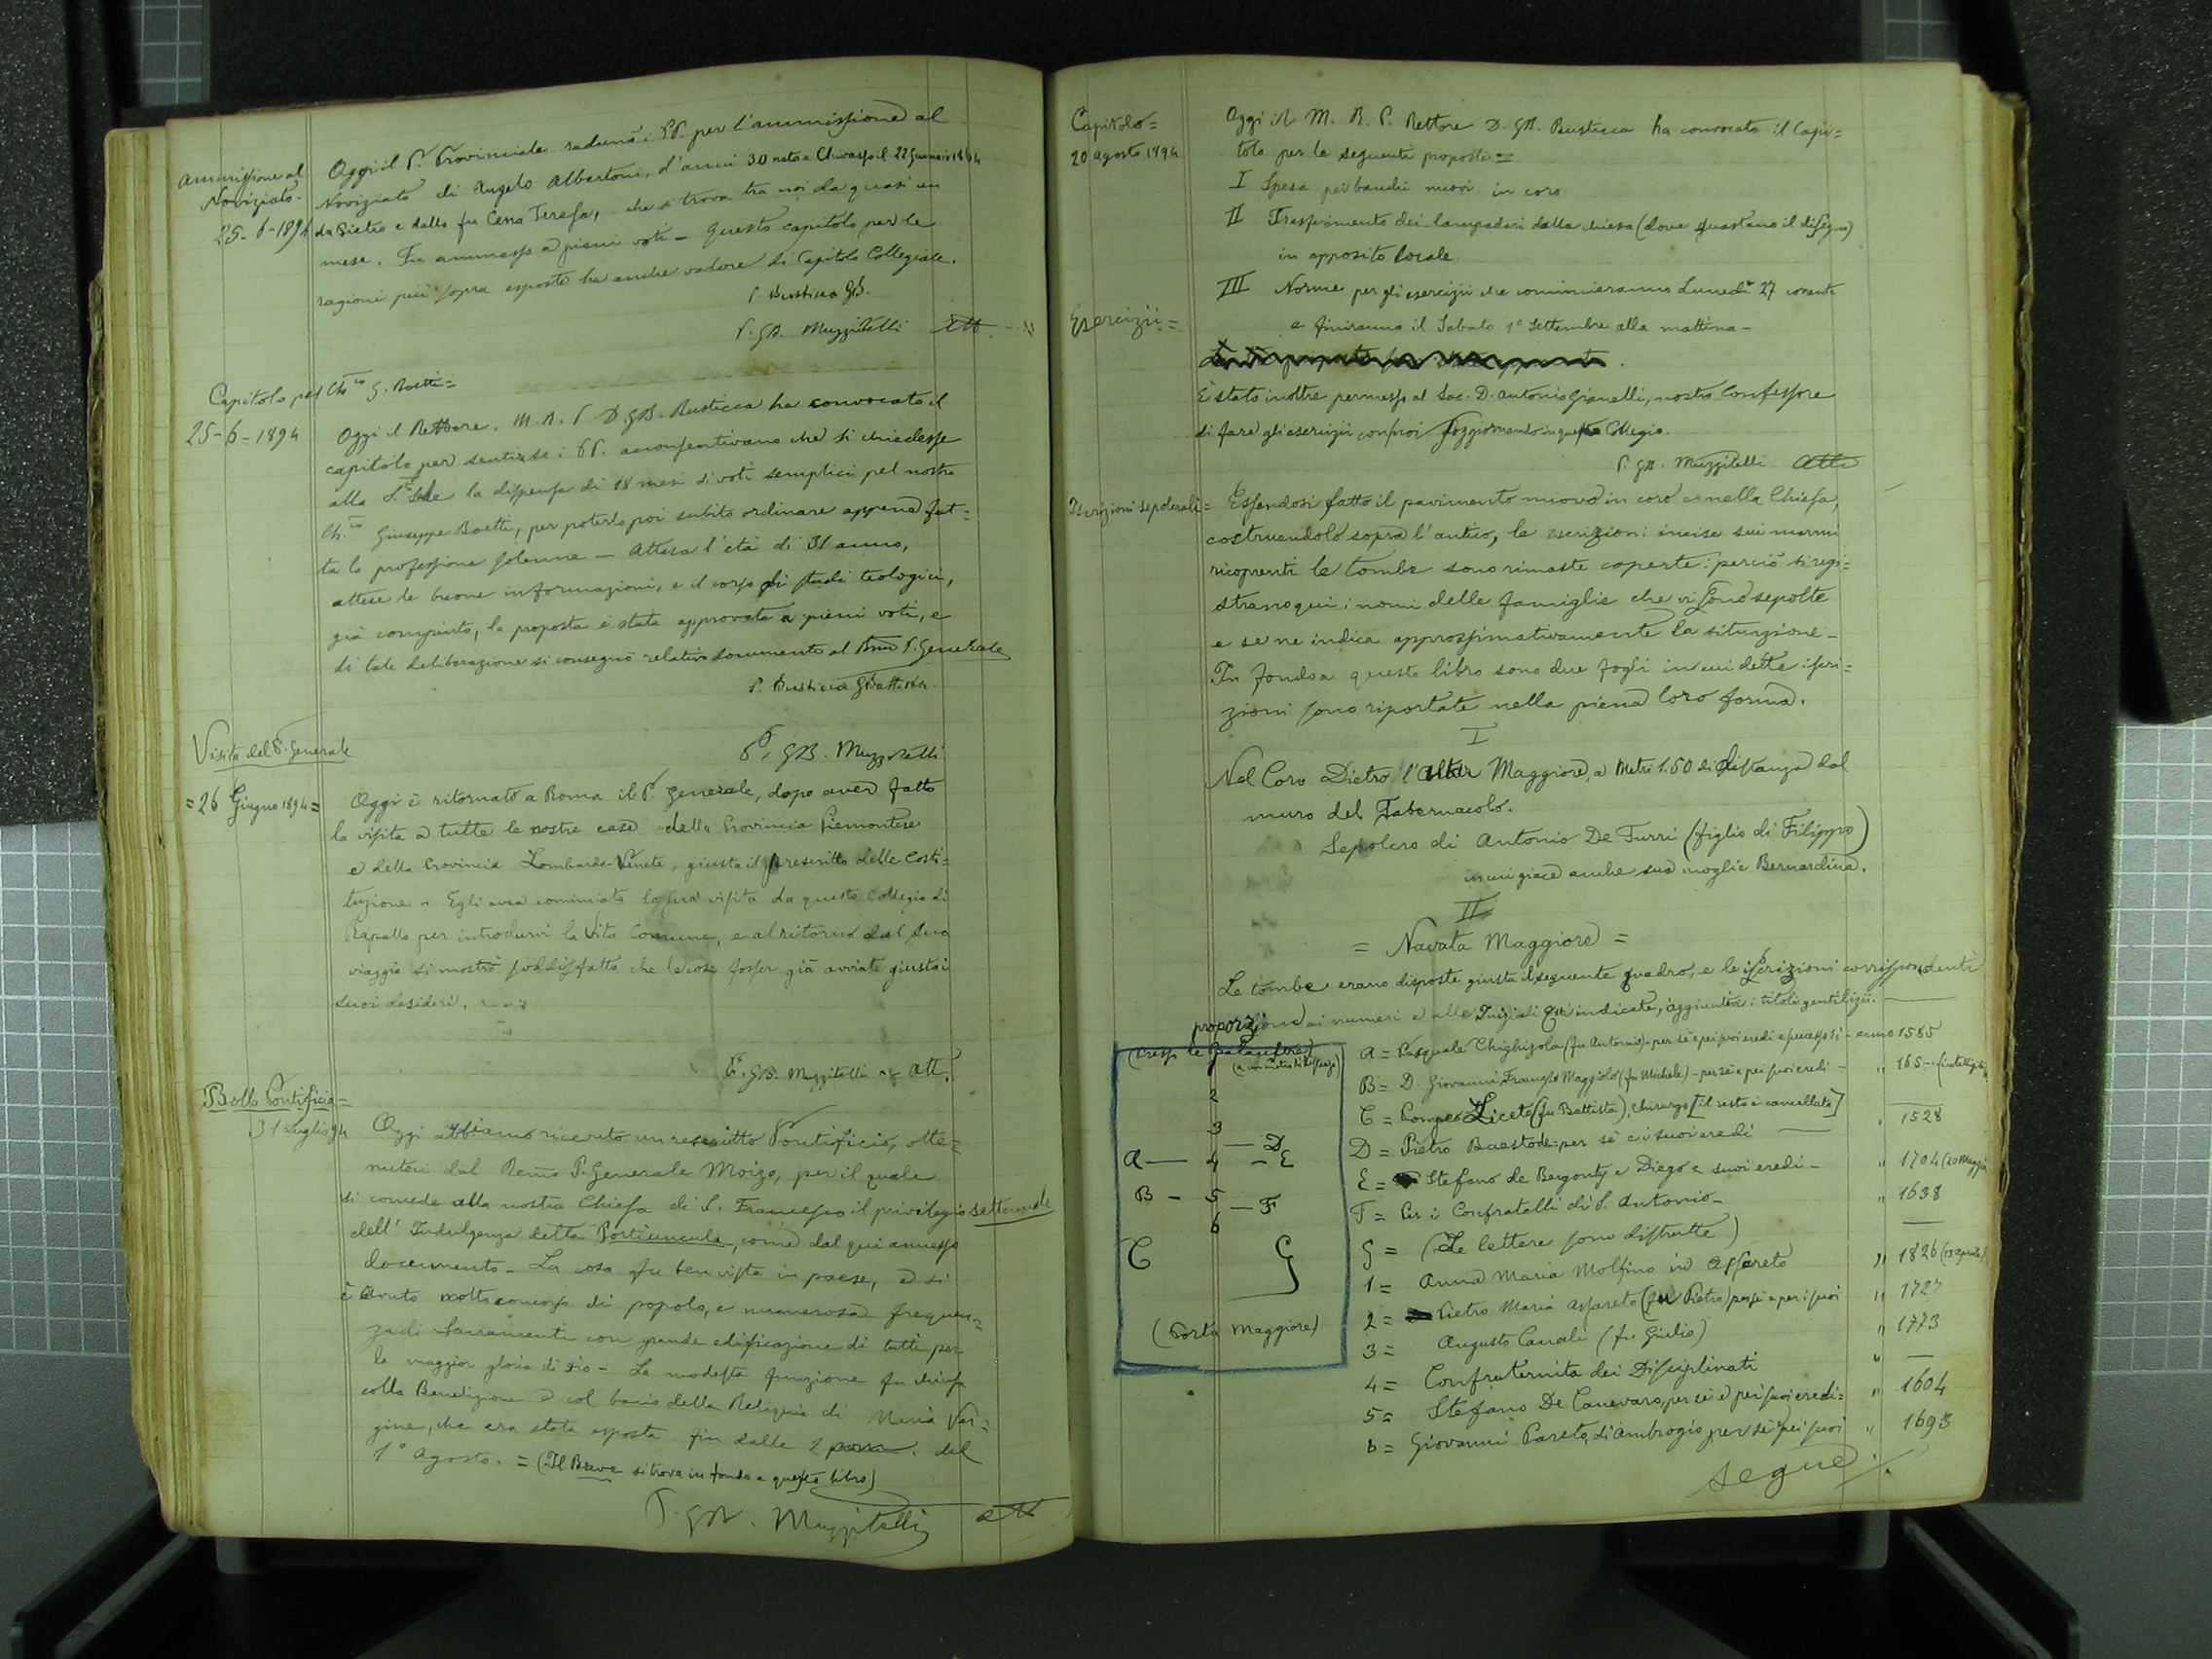 Ammissione al
Noviziato-
25-6-1894
Oggi il P. Provinciale radunò i PP. per l'ammissione al
Noviziato di Angelo Albertoni, d'anni 30 nato a Chivasso il 22 Gennaio 1864
da Pietro e dalla fu Cena Teresa, che si trova tra noi da quasi un
mese. Fu ammesso a pieni voti - Questo capitolo per le
ragioni più sopra esposte ha anche valore di Capitolo Collegiale.
P. Busticca GB.
P. GB. Muzzitelli Att.
Capitolo pel Ch.co G. Boetti=
25-6-1894
Oggi il Rettore, M. R. P. D. GB. Busticca ha convocato il
capitolo per sentire se i PP. acconsentivano che si chiedesse
alla S. Sede la dispensa di 18 mesi di voti semplici pel nostro
Ch.co Giuseppe Boetti, per poterlo poi subito ordinare appena fat=
ta la professione solenne - Attesa l'età di 31 anno,
attese le buone informazioni, e il corso di studi teologici,
già compiuto, la proposta è stata approvata a pieni voti, e
di tale deliberazione si consegnò relativo documento al Rmo P. Generale
P. Busticca GBattista
P. GB. Muzzitelli
Visita del P. Generale
=26 Giugno 1894=
Oggi è ritornato a Roma il P. Generale, dopo aver fatto
la visita a tutte le nostre case della Provincia Piemontese
e della Provincia Lombardo-Veneta, giusta il prescritto delle Costi=
tuzione - Egli avea cominciato la sua visita da questo Collegio di
Rapallo per introdurvi la vita Comune, e al ritorno dal suo
viaggio si mostrò soddisfatto che le cose fosser già avviate giusta i
suoi desideri.
P. GB. Muzzitelli Att.
Bolla Pontificia=
31 Luglio 94
Oggi abbiamo ricevuto un rescritto Pontificio, otte=
nutoci dal Remo P. Generale Moizo, per il quale
si concede alla nostra Chiesa di S. Francesco il privilegio settennale
dell' Indulgenza detta Portiuncula, come dal qui annesso
documento - La cosa fu ben vista in paese, e si
è avuto molto concorso di popolo, e numerosa frequen=
za di Sacramenti con grande edificazione di tutti per
la maggior gloria di Dio - La modesta funzione fu chiusa
colla Benedizione e col bacio della Reliquia di Maria Ver=
gine, che era stata esposta fin dalle 2 pom. del
1° Agosto. = (Il Breve si trova in fondo a questo libro)
P. GB. Muzzitelli att
Capitolo=
20 agosto 1894
Oggi il M. R. P. Rettore D. GB. Busticca ha convocato il Capi=
tolo per le seguenti proposte=
I Spesa pei banchi nuovi in coro
II Trasferimento dei lampadari dalla chiesa (dove guastano il disegno)
in apposito locale.
Esercizii=
III Norme per gli esercizii che cominceranno Lunedì 27 corrente
e finiranno il Sabato 1° Settembre alla mattina-
È stato inoltre permesso al Sac. D. Antonio Gianelli, nostro Confessore
di fare gli esercizii con noi soggiornando in questo Collegio.
P. GB. Muzzitelli Atti
Iscrizioni sepolcrali=
Essendosi fatto il pavimento nuovo in coro e nella Chiesa,
costruendolo sopra l'antico, le iscrizioni incise sui marmi
ricoprenti le tombe sono rimaste coperte: perciò si regi=
strano qui i nomi delle famiglie che vi sono sepolte
e se ne indica approssimativamente la situazione-
In fondo a questo libro sono due fogli in cui dette iscri=
zioni sono riportate nella piena loro forma.
I
Nel Coro Dietro l'Altar Maggiore, a Metri 1.50 di distanza dal
muro del Tabernacolo.
Sepolcro di Antonio De Turri (figlio di Filippo)
in cui giace anche sua moglie Bernardina.
II
= Navata Maggiore =
Le tombe erano disposte giusta il seguente quadro, e le iscrizioni corrispondenti
proporzione ai numeri e alle Iniziali qui indicate, aggiuntivi i titoli gentilizii.
(Presso le Balaustre)
2
3
D
A— 4 - E
B - 5
— F
6
C G
(Porta Maggiore)
A = Pasquale Chighizola (fu Antonio) - per sè e pei suoi eredi e successori - anno 1585
B = D. Giovanni Maggiolo (fu Michele) - per sè e pei suoi eredi - " 165-
C = Pompeo Liceto (fu Battista), Chirurgo [il resto è cancellato]
D = Pietro Baestode= per sè e i suoi eredi — " 1528
E = Stefano de Bergonty e Diego e suoi eredi - " 1704 (20 Maggio
F = Per i Confratelli di S. Antonio- " 1638
G = (Le lettere sono distrutte) —
1 = Anna Maria Molfino in Assereto " 1826 (13 aprile)
2 = Pietro Maria Assereto (fu Pietro) per sè e per i suoi " 1727
3 = Augusto Canali (fu Giulio) " 1773
4 = Confraternita dei Disciplinati " —
5 = Stefano De Canevaro, per sè e pei suoi eredi= " 1604
6 = Giovanni Pareto, di Ambrogio per sè e pei suoi " 1693
segue